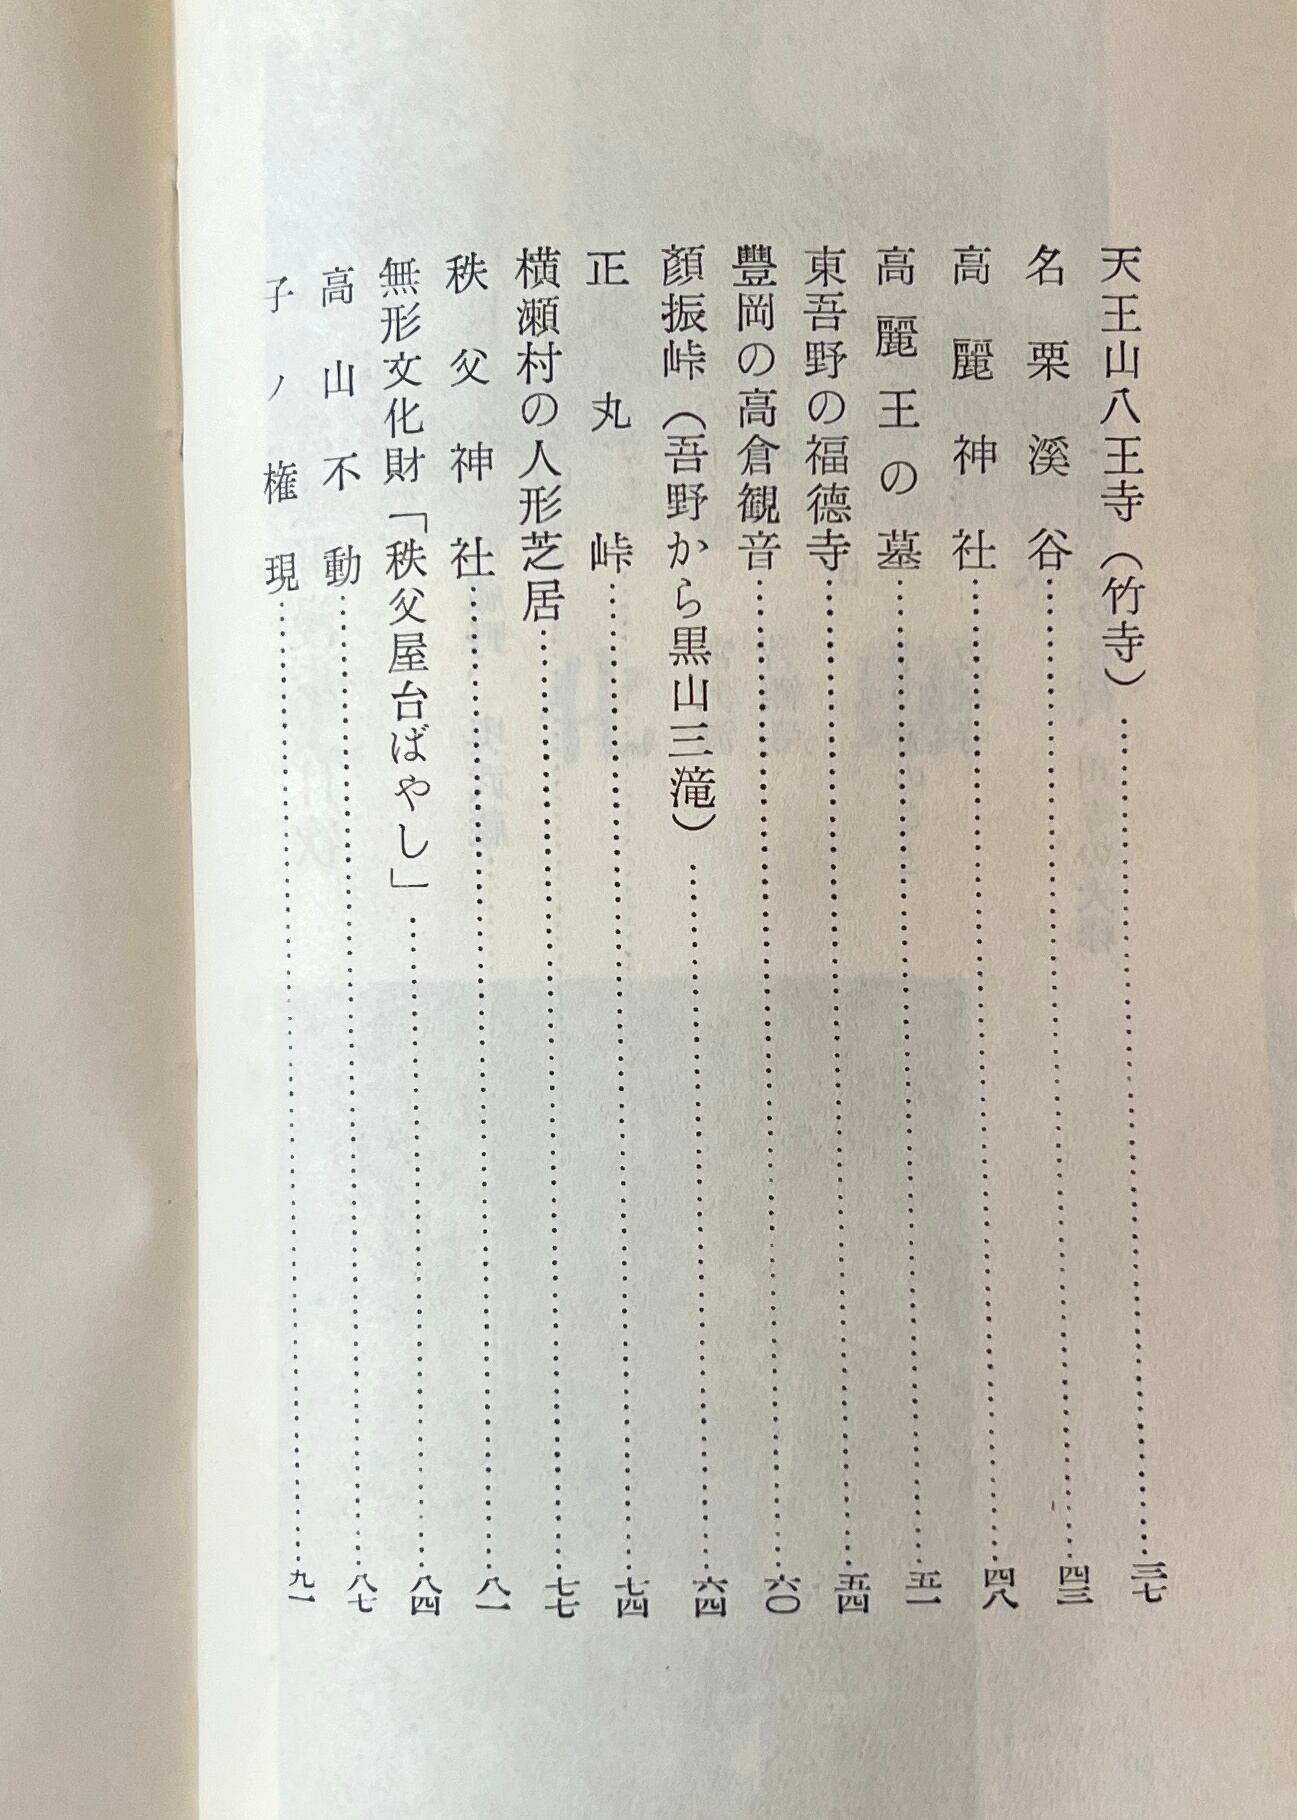 天王山八王寺（竹寺）……三七
名栗溪谷……四三
高麗神社……四八
高麗王の墓……五一
東吾野の福德寺……五四
豐岡の高倉観音……六〇
顏振峠（吾野から黒山三滝）……六四
正丸峠……七四
横瀬村の人形芝居……七七
秩父神社……八一
無形文化財「秩父屋台ばやし」……八四
高山不動……八七
子ノ権現……九一